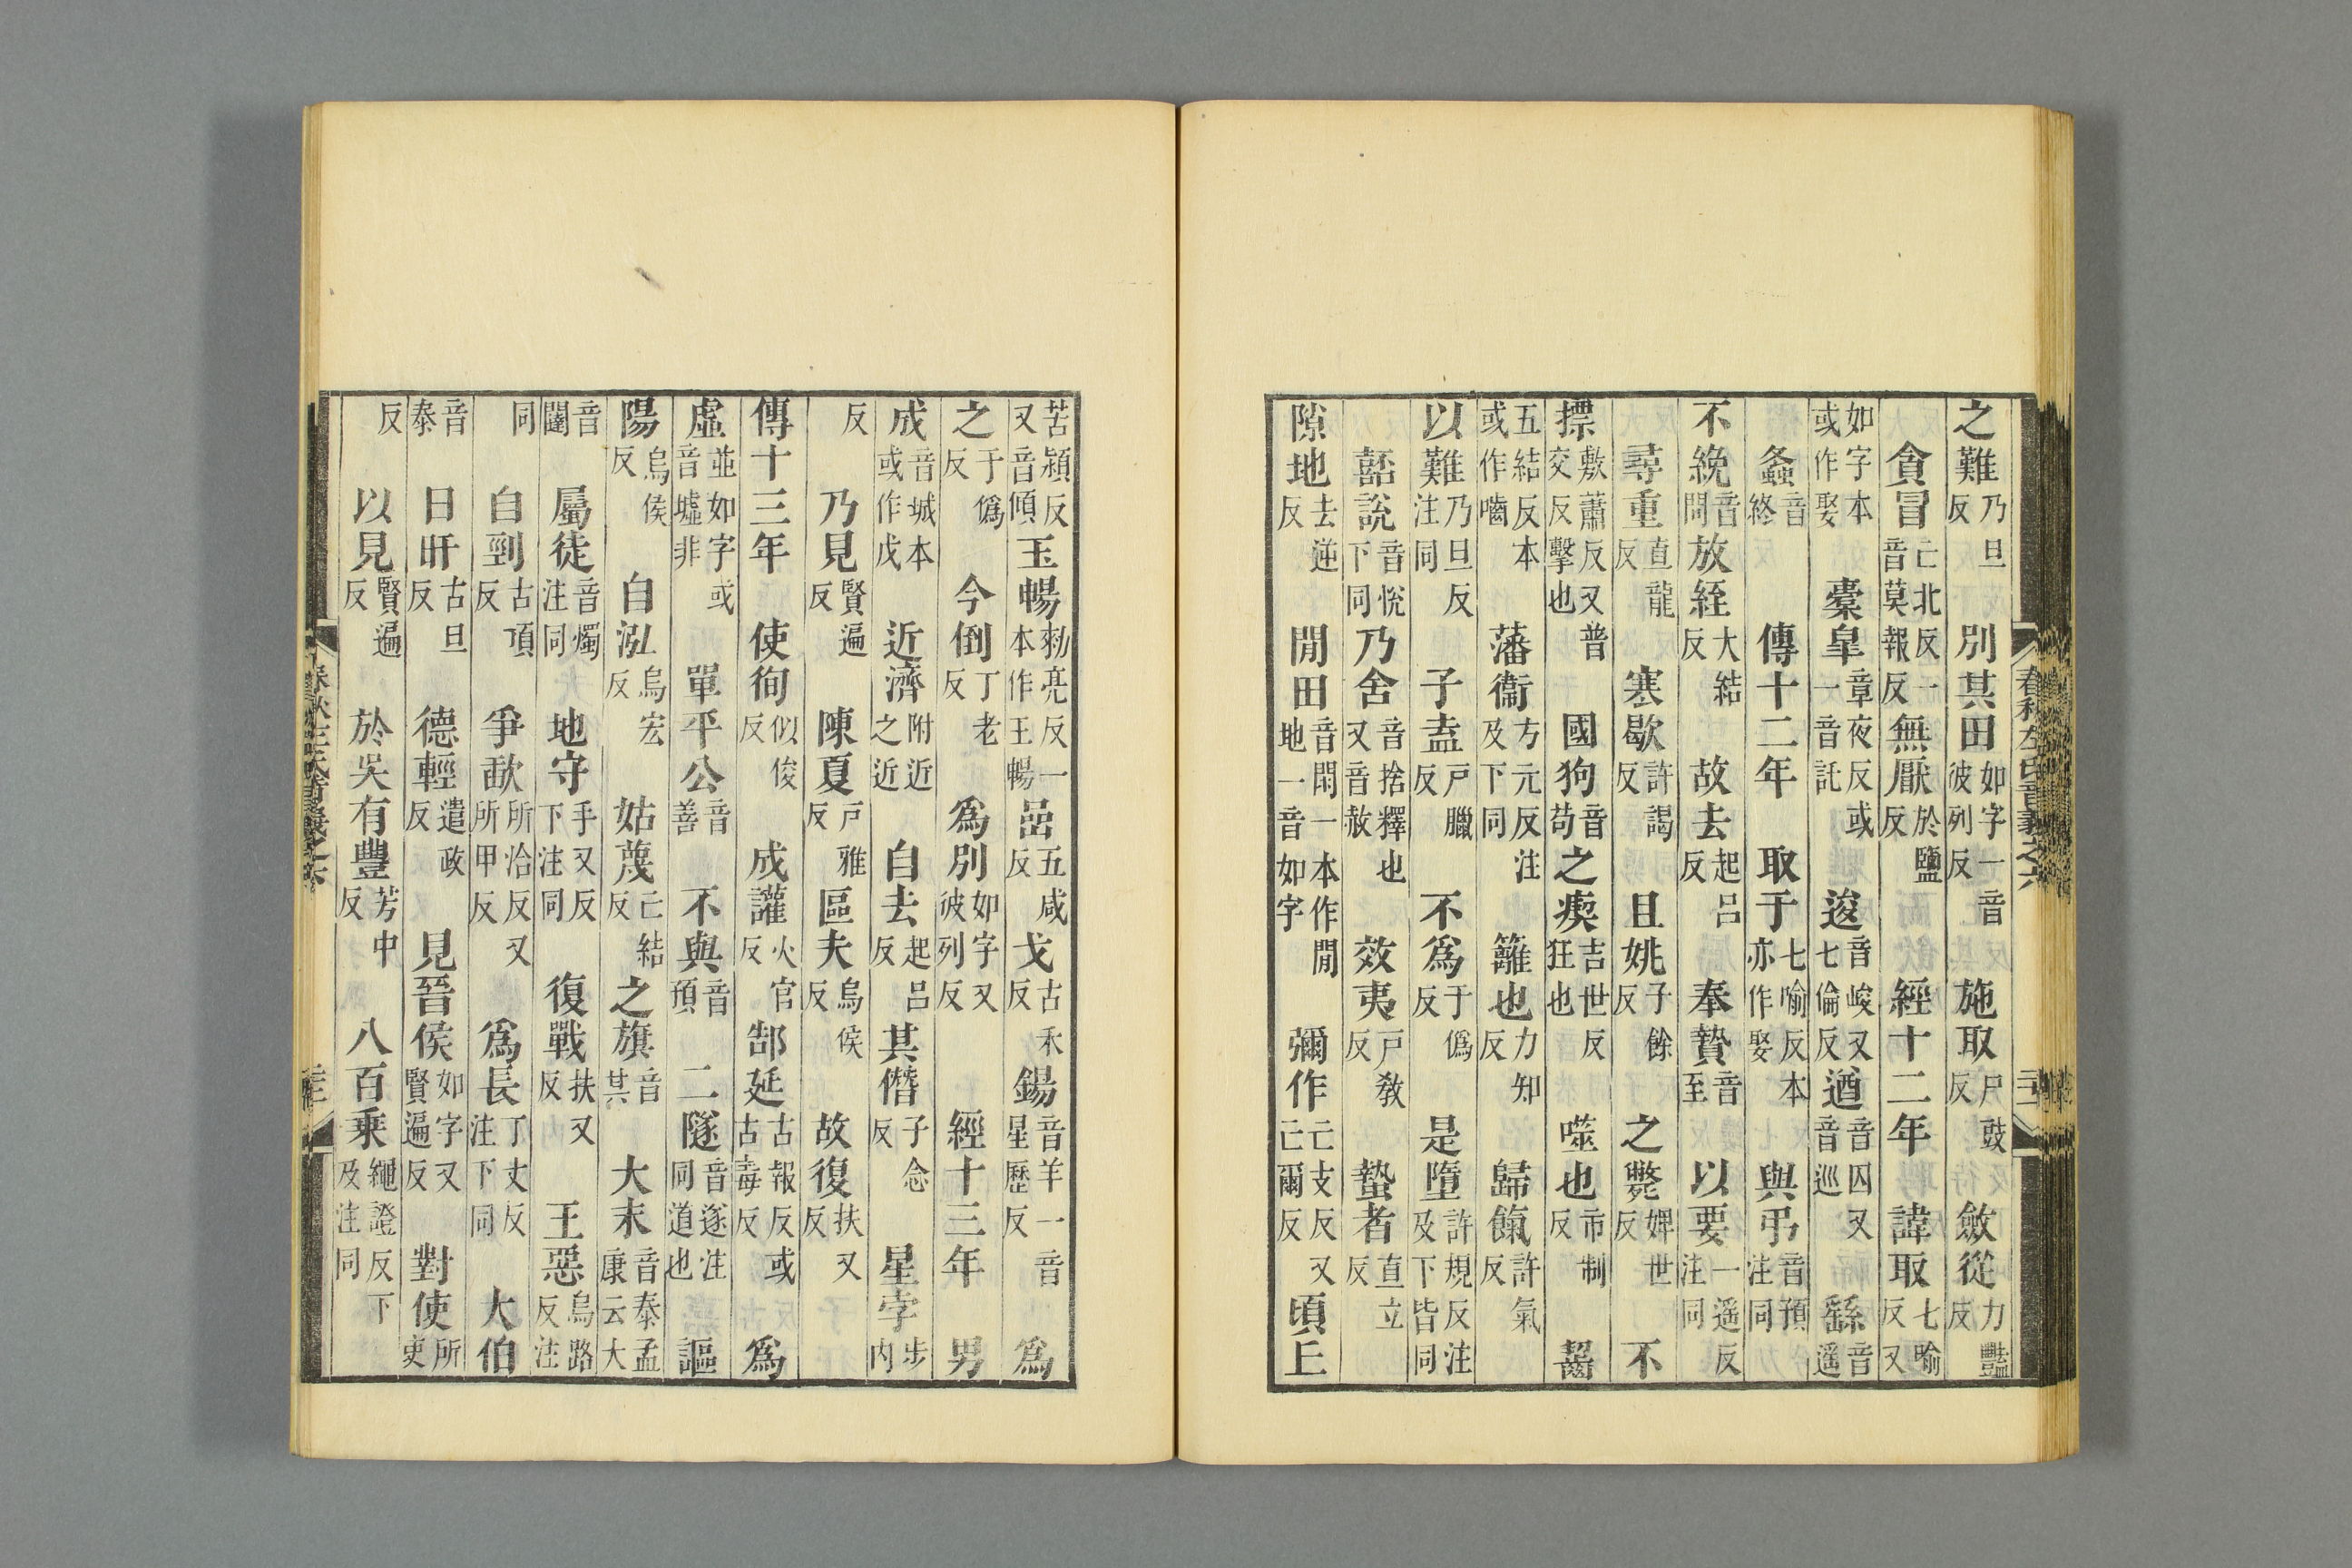 之難乃旦反別其田如字一音彼列反施取尸豉反斂從力豔反
貪冒亡北反一音莫報反無厭於鹽反經十二年諱取七喻反又
如字本或作娶橐皐章夜反或一音託逡音峻又七倫反遒音囚又音巡繇音遥
螽音終傳十二年取于七喻反本亦作娶與弔音預注同
不絻音問放絰大結反故去起呂反奉贄音至以要一遥反注同
尋重直龍反寒歇許謁反且姚子餘反之斃婢世反不
摽敷蕭反又普交反擊也國狗音苟之瘈吉世反狂也噬也市制反齧
五結反本或作嚙藩衞方元反注及下同籬也力知反歸餼許氣反
以難乃旦反注同子盍戶臘反不爲于僞反是墮許規反注及下皆同
嚭說音悅下同乃舍音捨釋也又音赦效夷戶敎反蟄者直立反
隙地去逆反閒田音閑一本作閒地一音如字彌作亡支反又亡爾反頃丘
春秋左氏音義之六
苦潁反又音傾玉暢勑亮反一本作王暢嵒五咸反戈古禾反鍚音羊一音星歷反爲
之于僞反今倒丁老反爲別如字又彼列反經十三年男
成音城本或作戊近濟附近之近自去起呂反其僭子念反星孛步内
反乃見賢遍反陳夏戶雅反區夫烏侯反故復扶又反
傳十三年使徇似俊反成讙火官反郜延古報反或古毒反爲
虛並如字或音墟非單平公音善不與音預二隧音遂注同道也謳
陽烏侯反自泓烏宏反姑蔑亡結反之旗音其大末音泰孟康云大
音闥屬徒音燭注同地守手又反下注同復戰扶又反王惡烏路反注
同自剄古頂反爭歃所洽反又所甲反爲長丁丈反注下同大伯
音泰日旰古旦反德輕遣政反見晉侯如字又賢遍反對使所吏
反以見賢遍反於吳有豐芳中反八百乘繩證反下及注同